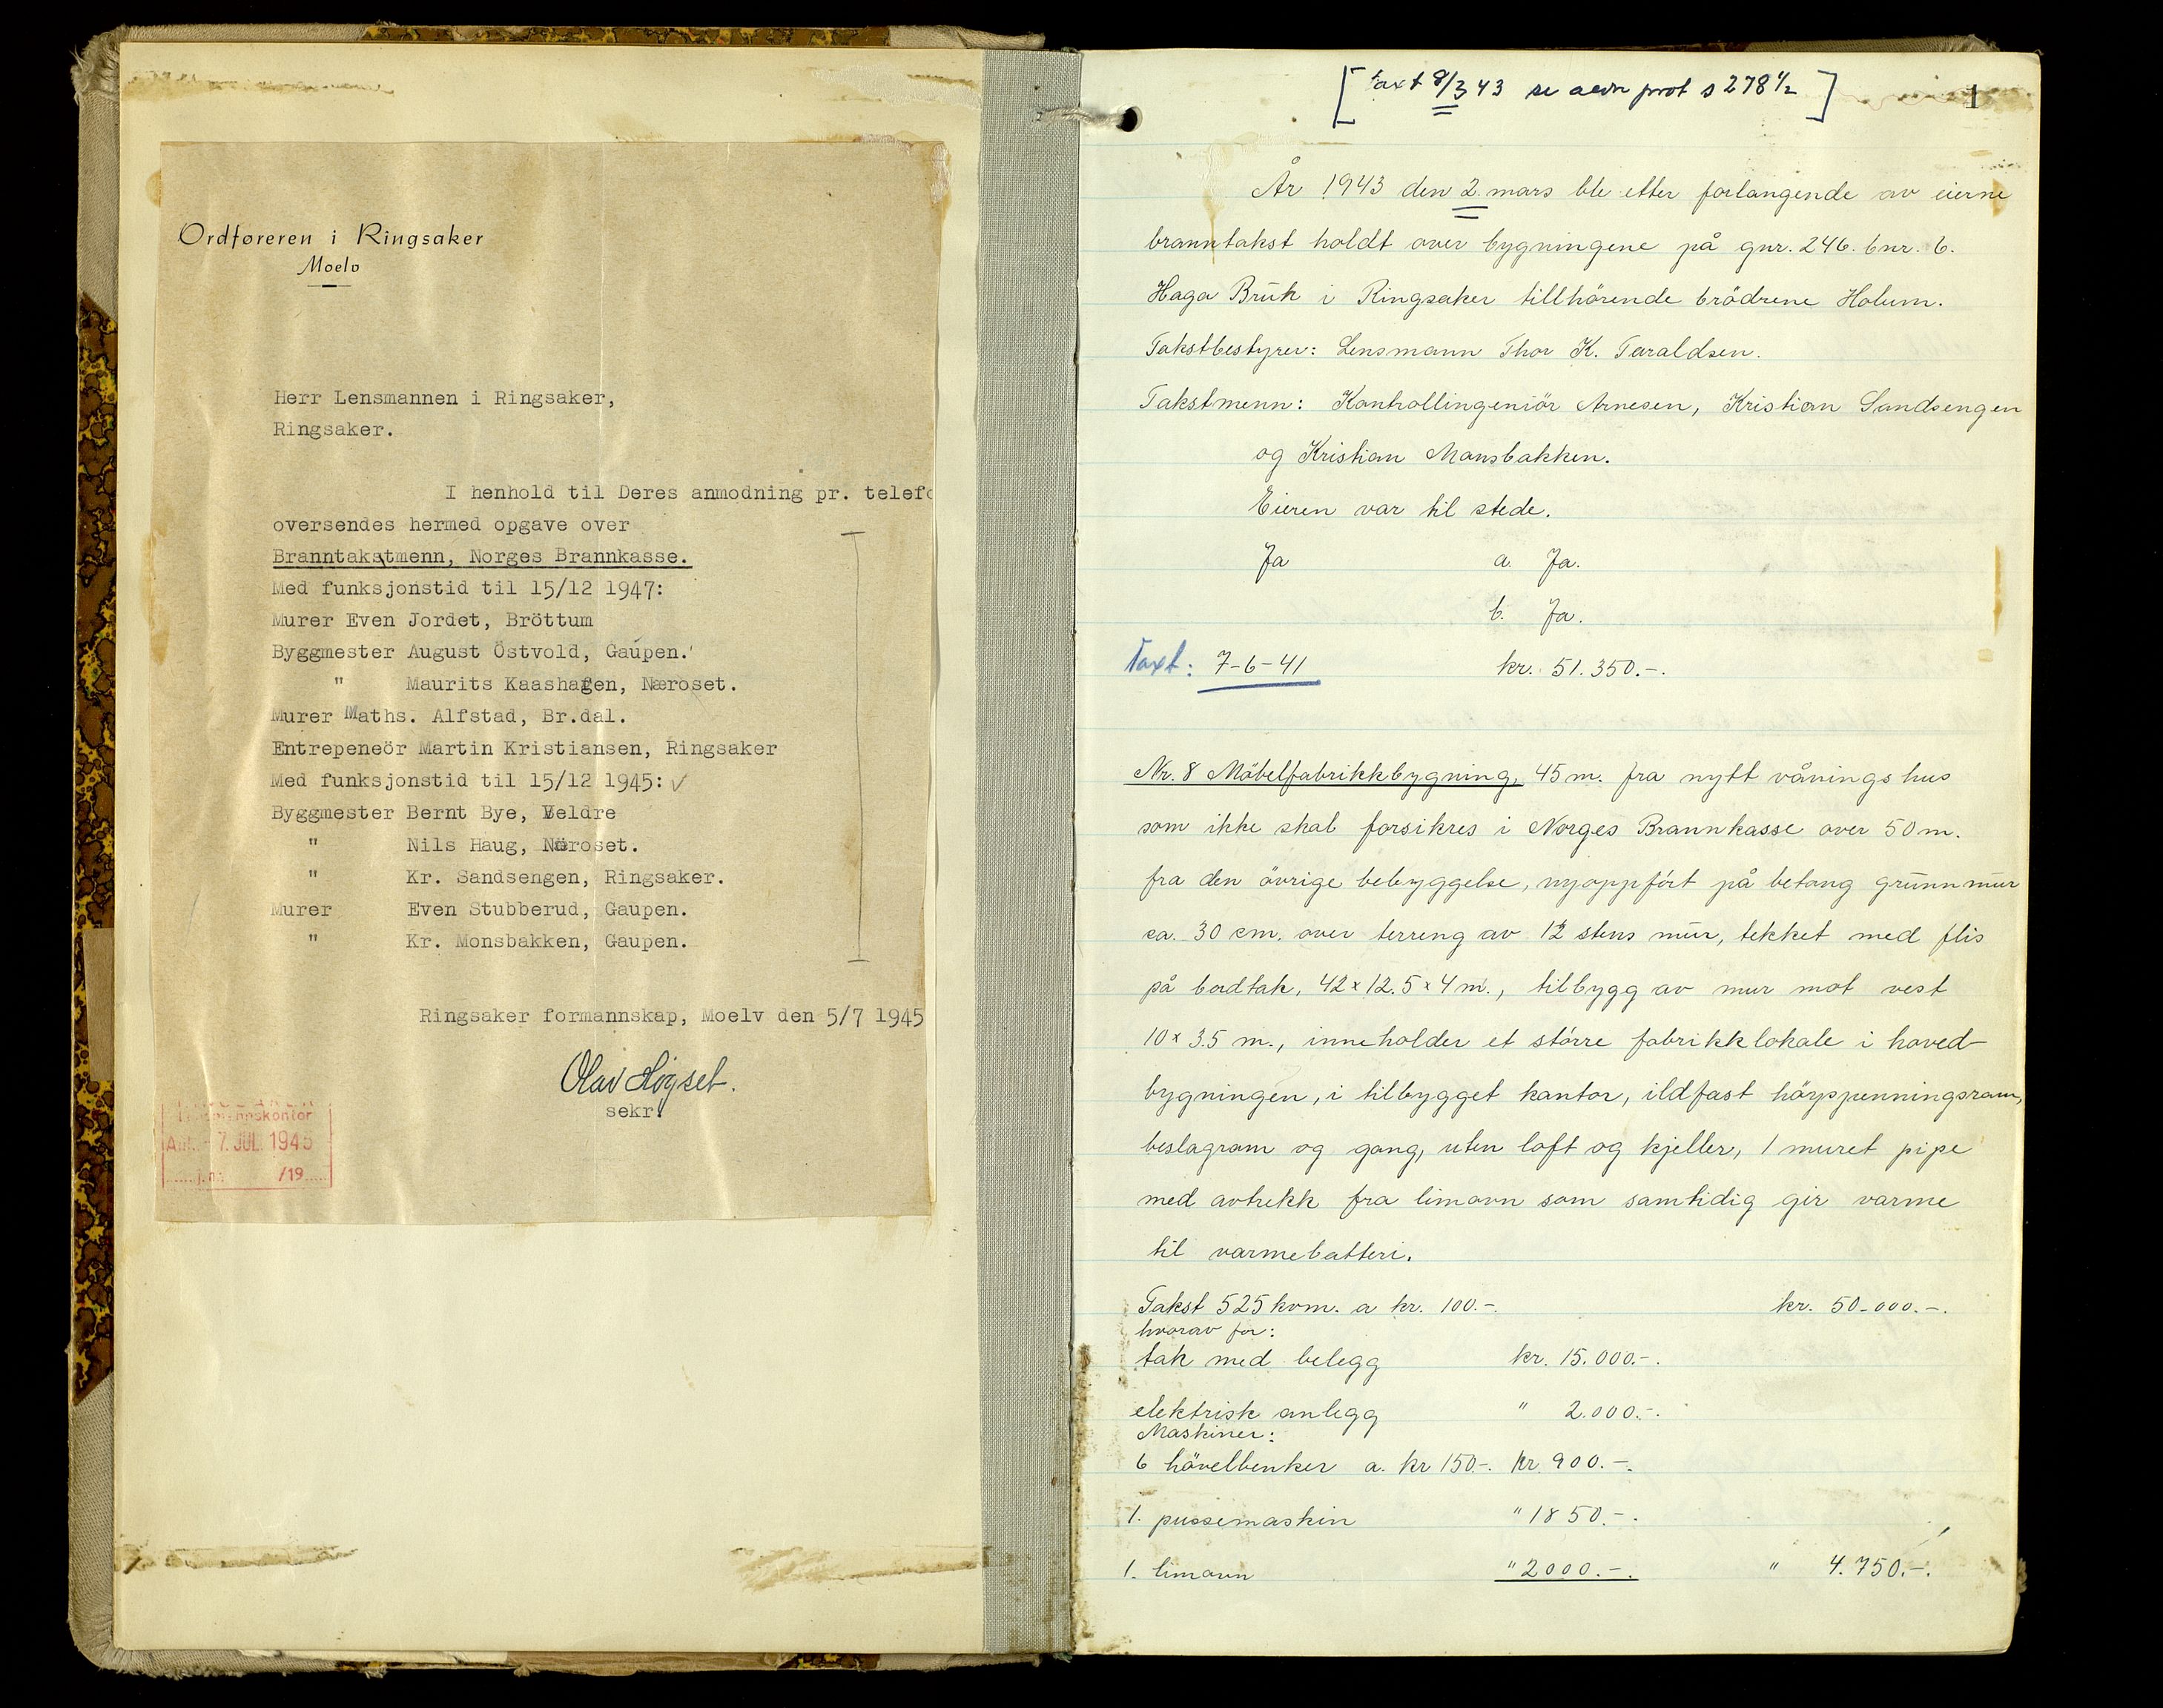 Ordføreren i Ringsaker
Moelv
Herr Lensmannen i Ringsaker,
Ringsaker.
I henhold til Deres anmodning pr. telefo
oversendes hermed opgave over
Branntakstmenn, Norges Brannkasse.
Med funksjonstid til 15/12 1947:
Murer Even Jordet, Bröttum
Byggmester August Östvold, Gaupen.
" Maurits Kaashagen, Næroset.
Murer Maths. Alfstad, Br.dal.
Entrepeneör Martin Kristiansen, Ringsaker
Med funksjonstid til 15/12 1945: ✓
Byggmester Bernt Bye, Veldre
" Nils Haug, Næroset.
" Kr. Sandsengen, Ringsaker.
Murer Even Stubberud, Gaupen.
" Kr. Monsbakken, Gaupen.
Ringsaker formannskap, Moelv den 5/7 1945
Olav Högset.
sekr.
Lensmannskontor
Ank. 7. JUL. 1945
j.nr. /19
[taxt 8/3 43 se prot s 278½]
1
År 1943 den 2. mars ble etter forlangende av eierne
branntakst holdt over bygningene på gnr. 246. bnr. 6.
Haga Bruk i Ringsaker tillhörende brödrene Holum.
Takstbestyrer: Lensmann Thor K. Taraldsen.
Takstmenn: Kontrollingeniör Arnesen, Kristian Sandsengen
og Kristian Monsbakken.
Eieren var til stede.
Ja a. Ja.
b. Ja.
Taxt: 7-6-41 kr. 51.350.-.
Nr. 8 Möbelfabrikkbygning, 45 m. fra nytt våningshus
som ikke skal forsikres i Norges Brannkasse over 50 m.
fra den övrige bebyggelse, nyoppfört på betong grunnmur
ca. 30 cm. over terreng av 1½ stens mur, tekket med flis
på bordtak, 42 x 12.5 x 4 m., tilbygg av mur mot vest
10 x 3.5 m., inneholder et större fabrikklokale i hoved-
bygningen, i tilbygget kontor, ildfast rom,
beslagrom og gang, uten loft og kjeller, 1 muret pipe
med avtrekk fra limovn som samtidig gir varme
til varmebatteri.
Takst 525 kvm. a kr. 100.-. kr. 50.000.-.
hvorav for:
tak med belegg kr. 15.000.-.
elektrisk anlegg " 2.000.-.
Maskiner:
6 hövelbenker a. kr 150.-. kr. 900.-.
1. pussemaskin " 1850.-.
1. limovn " 2000.-. " 4.750.-.